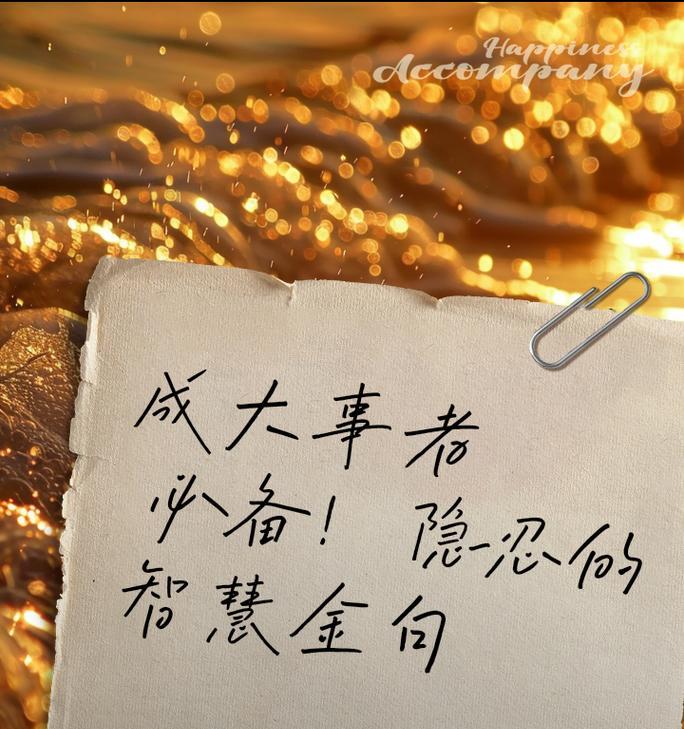 Happiness
Accompany
成大事者
必备！ 隐忍的
智慧金句